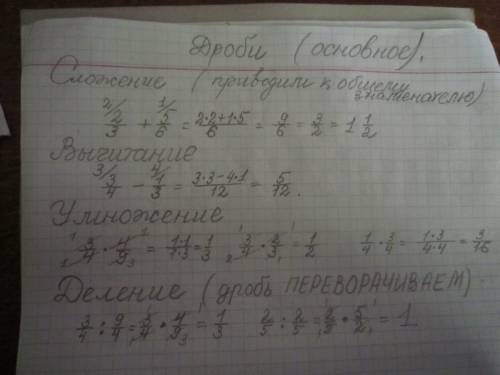 Дроби (основное).
Сложение (приводим к общему знаменателю)
2/3 + 5/6 = 2·2+1·5/6 = 9/6 = 3/2 = 1 1/2
Вычитание
3/4 − 1/3 = 3·3−4·1/12 = 5/12.
Умножение
3/4 · 4/9 = 1·1/1·3 = 1/3 3/4 · 2/3 = 1/2 1/4 · 3/4 = 1·3/4·4 = 3/16
Деление (дробь ПЕРЕВОРАЧИВАЕМ)
3/4 : 9/4 = 3/4 · 4/9 = 1/3 2/5 : 2/5 = 2/5 · 5/2 = 1